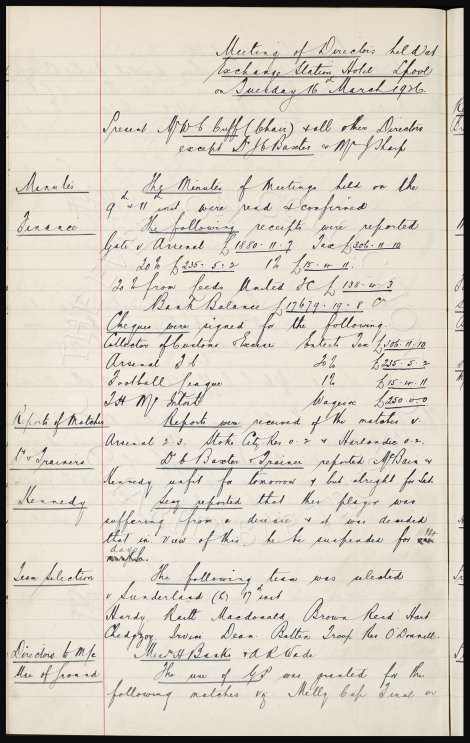 Meeting of Directors held at
Exchange Station Hotel L'pool
on Tuesday 16th March 1926
Present Mr W C Cuff (Chair) & all other Directors
except Dr J C Baxter & Mr J Sharp
Minutes
The Minutes of Meetings held on the
9th & 11th inst were read & confirmed
Finance
The following receipts were reported
Gate v Arsenal £1880-11-7 Tax £306-11-10
20% £235-5-2 1% £15-4-11
20% from Leeds United FC £138-4-3
Bank Balance £17679-19-8 Cr
Cheques were signed for the following
Collector of Customs & Excise Enterts Tax £306-11-10
Arsenal F C 20% £235-5-2
Football League 1% £15-4-11
T H McIntosh Wages £250-0-0
Reports of Matches
Reports were received of the matches v.
Arsenal 2.3. Stoke City Res 0.2 & 0.2.
Dr & Trainers
Dr Baxter & Trainer reported McBain &
Kennedy unfit for tomorrow & but alright for Sat.
Kennedy
Secy reported that this player was
suffering from a disease & it was decided
that in view of this he be suspended for
days
Team Selection
The following team was selected
v Sunderland (6) 17th inst
Hardy Raitt Macdonald Brown Reid Hart
Chedgzoy Irvine Dean Batten Troup Res O'Donnell.
Directors to M/c
Messrs H Banks & A R Wade.
Use of Ground
The use of GP was granted for the
following matches viz Melly Cup Final on